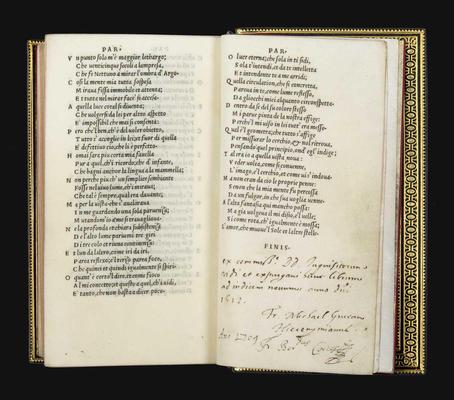 PAR.
V n punto solo m'è maggior lethargo;
C he venticinque secoli a la impresa,
C he fe Nettuno a mirar l'ombra d'Argo.
C osi la mente mia tutta sospesa
M irava fissa immobile et attenta;
E t tutta nel mirar facea si accesa.
A quella luce cotal si diventa;
C he volgersi da lei per altro aspetto
E' impossibil che mai si consenta:
P ero che'l ben, ch'è del voler obietto,
T utto s'accoglie in lei; et fuor di quella
E' difettivo cio, che li è perfetto.
H omai sara piu corta mia favella
P ur a quel, ch'i ricordo; che d'infante,
C he bagni anchor la lingua a la mammella;
N on perche piu ch'un semplice sembiante
F osse nel vivo lume, ch'i mirava;
C he tal è sempre, qual era davante:
M a per la vista che s'avalorava
I n me guardando una sola parvenza;
M utandom'io a me si travagliava.
N e la profonda et chiara subsistenza
D e l'alto lume parvemi tre giri
D i tre colori et d'una continenza:
E t l'un da l'altro, come iri da iri,
P area reflexo; e'l terzo parea foco,
C he quinci et quindi igualmente si spiri.
O quant'è corto'l dire et come fioco
A l mio concetto: et questo a quel, ch'i vidi,
E' tanto, che non basta a dicer poco.
PAR.
O luce eterna; che sola in te sidi,
S ola t'intendi, et da te intelletta
E t intendente te a me arridi;
Q uella circulation, che si concetta,
P areva in te, come lume reflesso,
D a gliocchi miei alquanto circonspetta;
D entro da se del suo colore stesso
M i parve pinta de la nostra effige:
P erche'l mi viso in lei tutt'era messo.
Q ual è'l geometra, che tutto s'affige
P er misurar lo cerchio, et non ritrova,
P ensando, quel principio, ond'egl'indige;
T al era io a quella vista nova:
V eder volea, come si convenne,
L 'imago al cerchio, et come vi s'indova:
M a non eran da cio le proprie penne:
S e non che la mia mente fu percossa
D a un fulgor, in che sua voglia venne.
A l'alta fantasia qui manco possa:
M a gia volgeva il mi disio, e'l velle;
S i come rota, ch'igualmente è mossa;
L 'amor, che muove il Sole et l'altre stelle.
FINIS.
ex commiss. DD. Inquisitorum
vidi et expurgavi hunc librum
ad indicem novum anno dñi
1612.
Fr. Michael Guerau
Hieronymianus